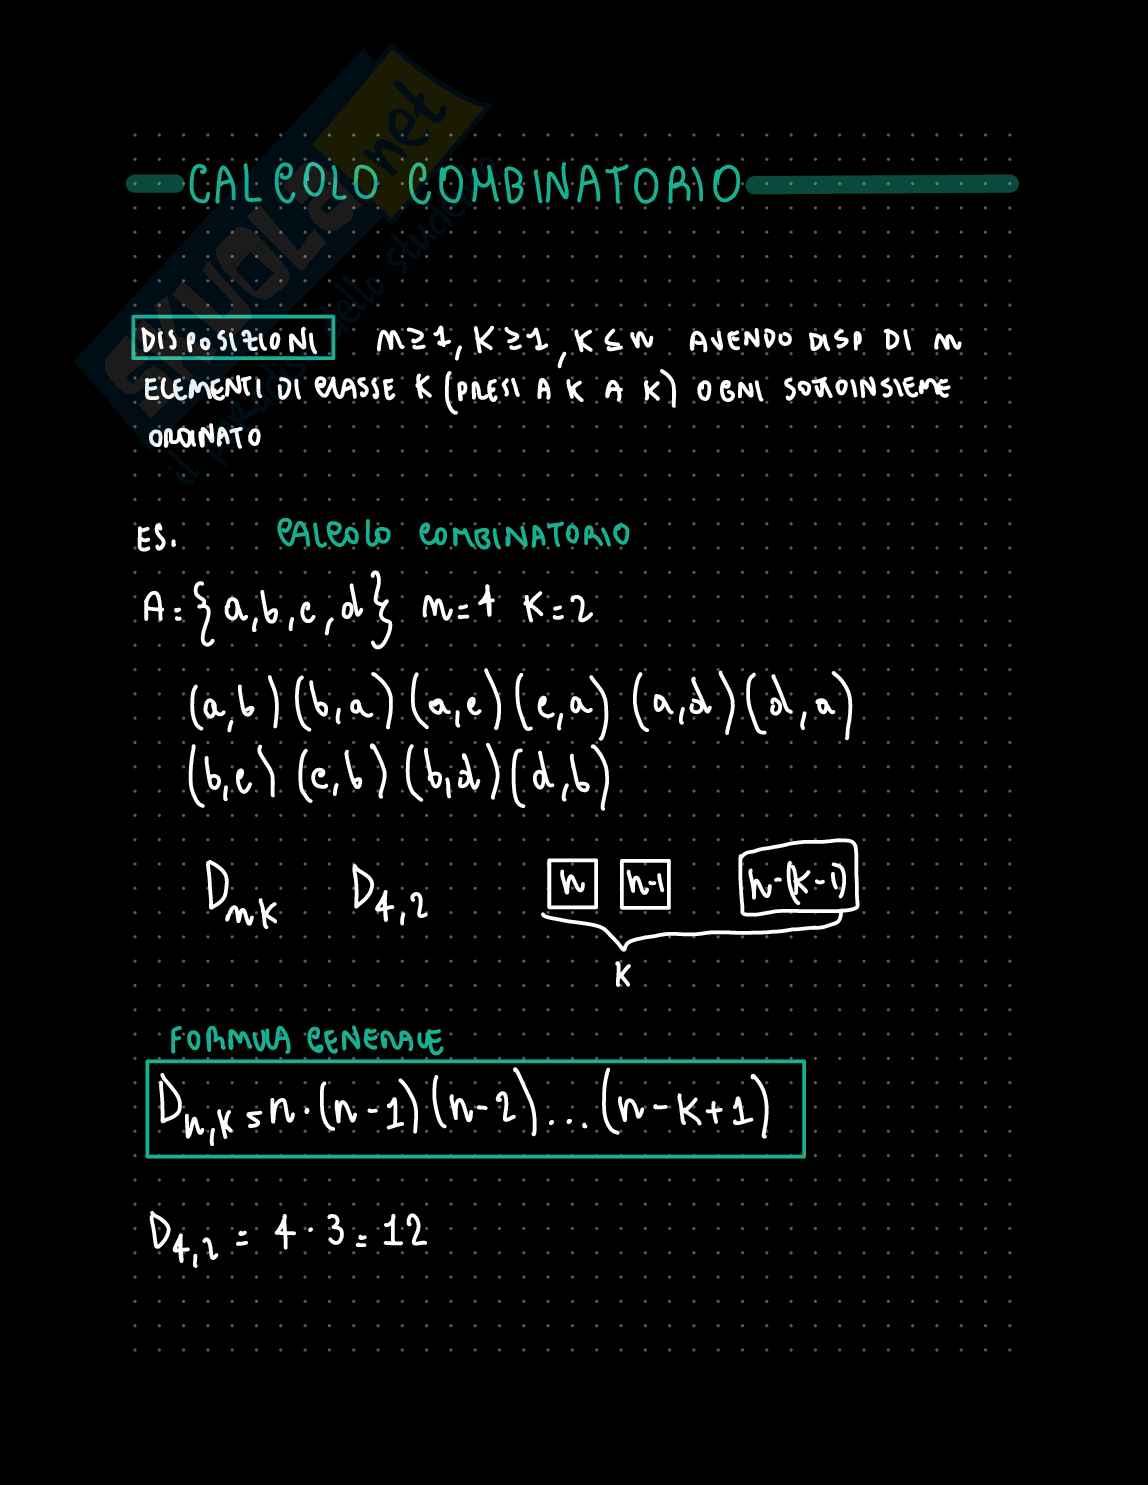 CALCOLO COMBINATORIO
DISPOSIZIONI n≥1, K≥1, K≤n AVENDO DISP DI n
ELEMENTI DI CLASSE K (PRESI A K A K) OGNI SOTTOINSIEME
ORDINATO
ES. CALCOLO COMBINATORIO
A={a,b,c,d} n=4 K=2
(a,b)(b,a)(a,c)(c,a)(a,d)(d,a)
(b,c)(c,b)(b,d)(d,b)
D_nK D_4,2 n n-1 n-(K-1)
K
FORMULA GENERALE
D_n,K = n·(n-1)(n-2)...(n-K+1)
D_4,2 = 4·3=12
SKUOLA.net